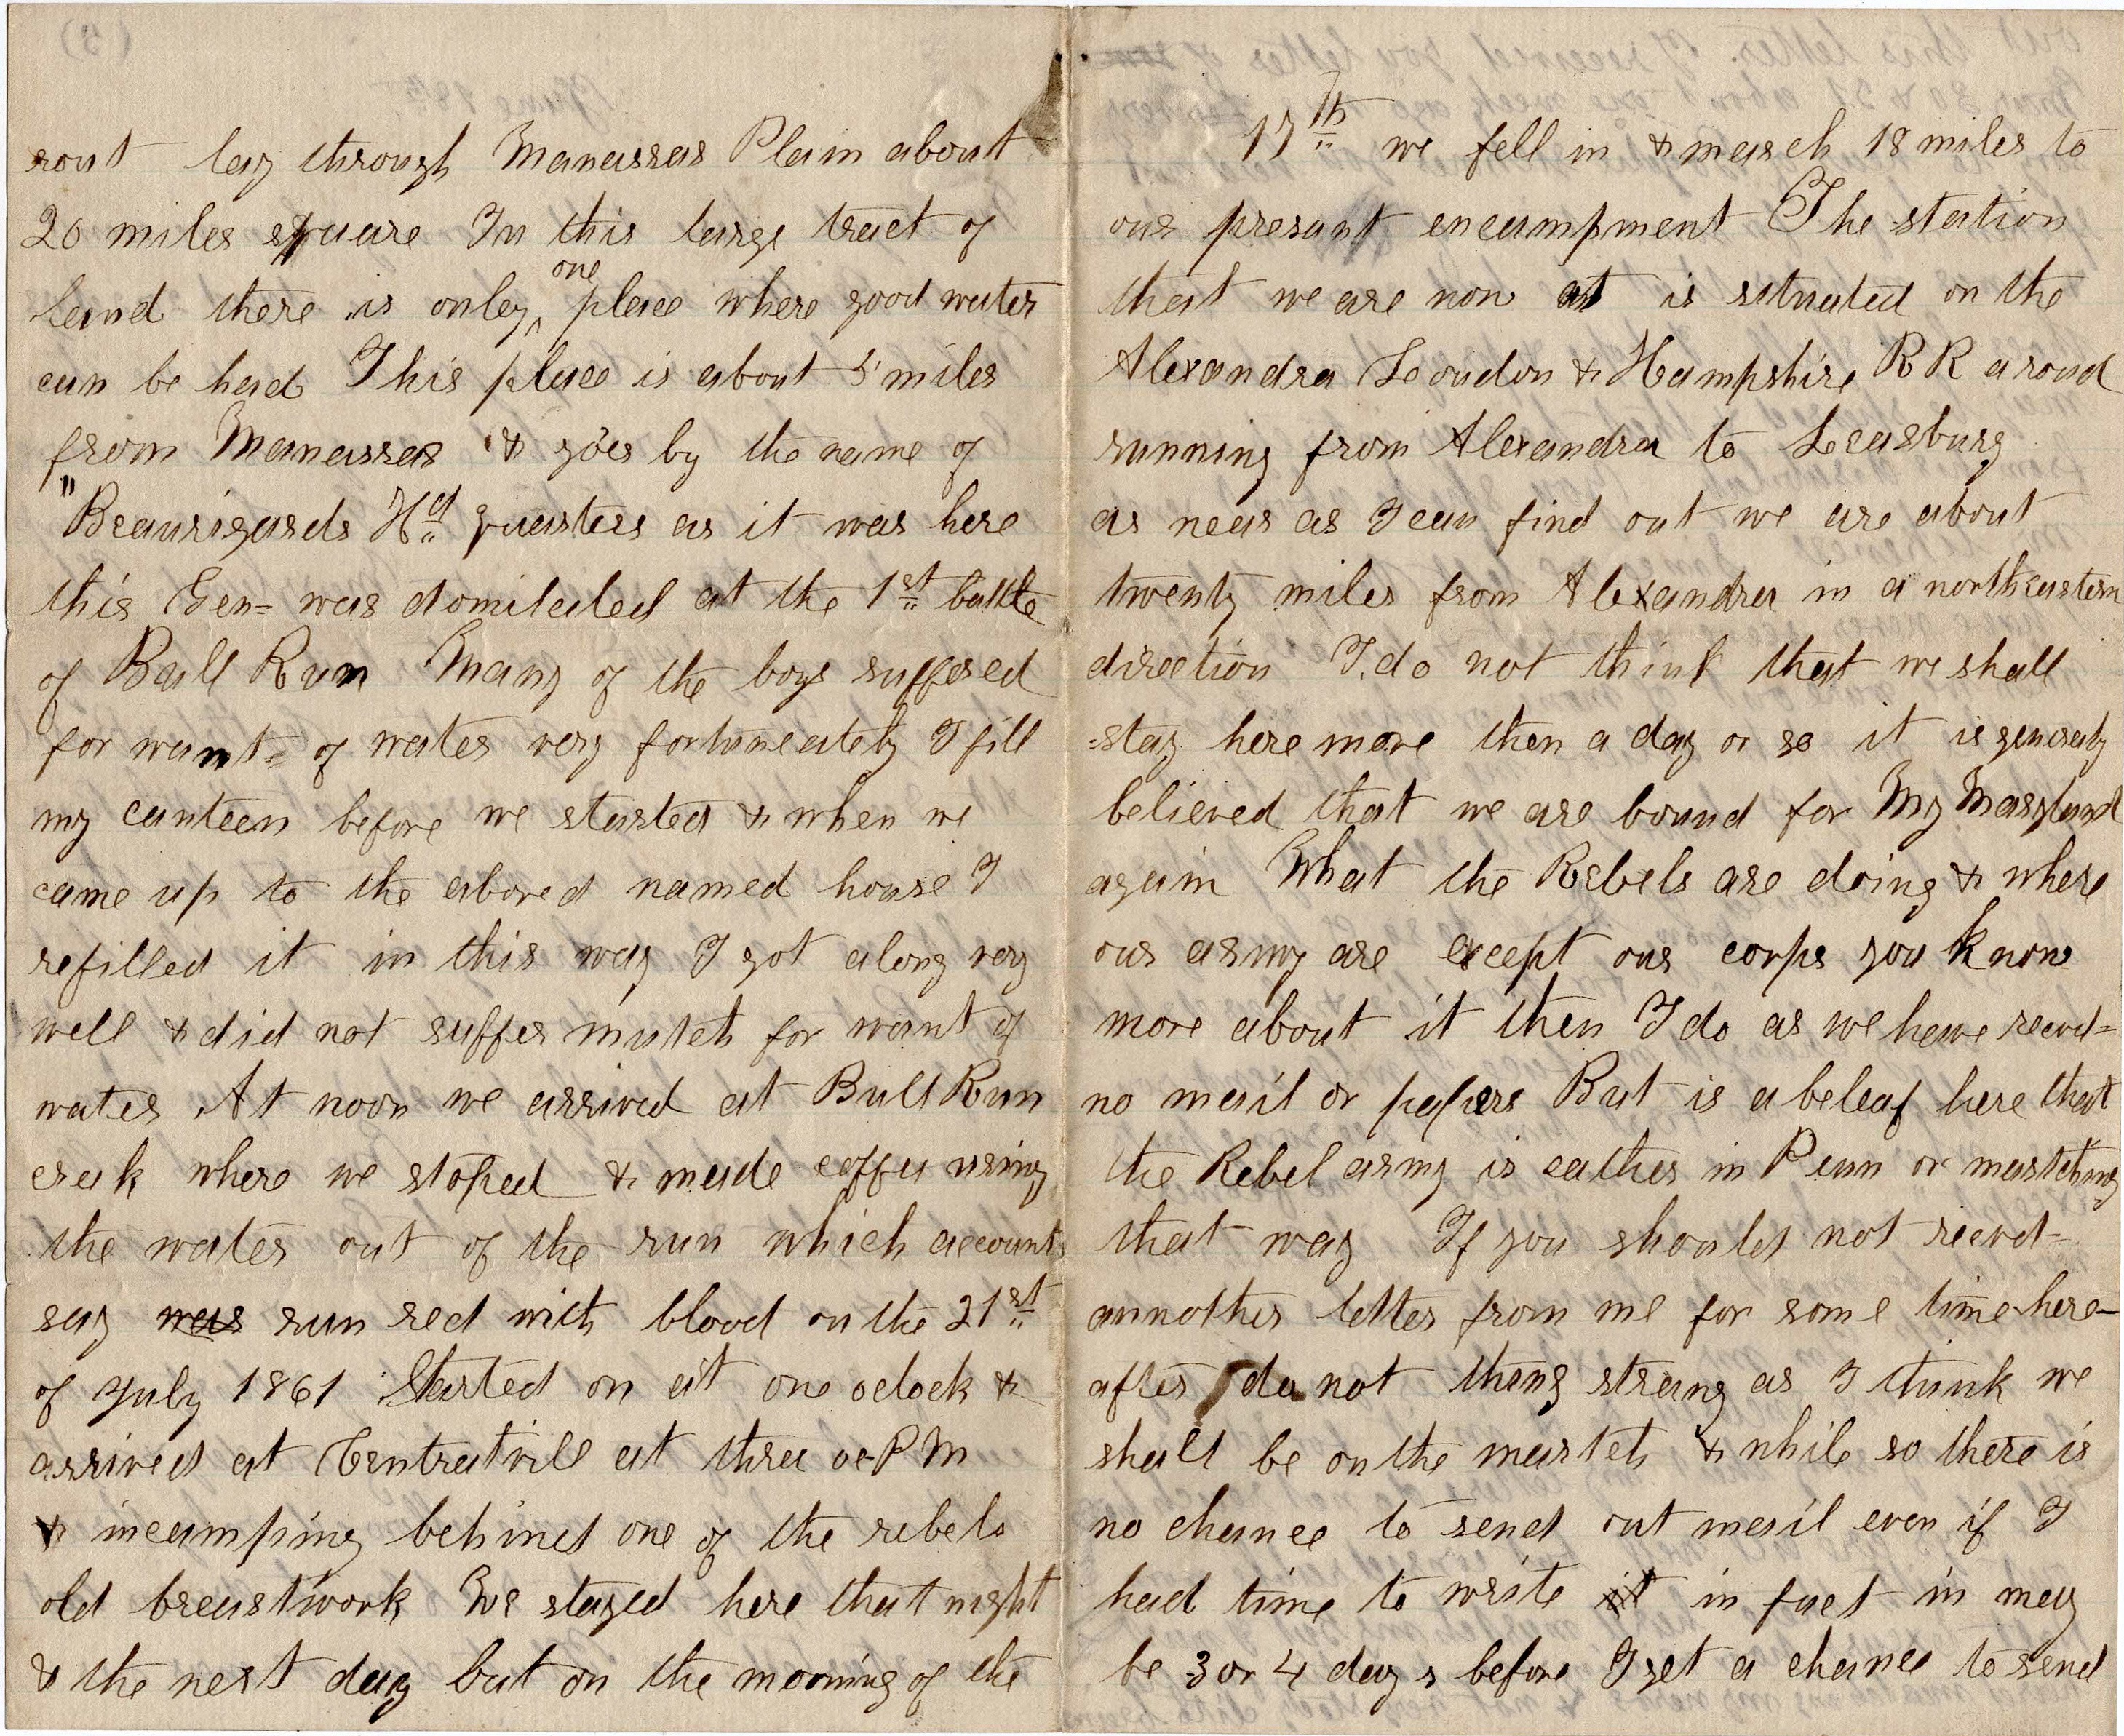 rout lay through Manassas Plain about
20 miles square In this large tract of
land there is onley one place where good water
can be had This place is about 5 miles
from Manassas & goes by the name of
"Beaurigards Hd quarters as it was here
this Gen= was domilciled at the 1st battle
of Bull Run Many of the boys suffered
for want of water very fortuneately I fill
my canteen before we started & when we
came up to the aboved named house I
refilled it in this way I got along very
well & did not suffer mutch for want of
water At noon we arrived at Bull Run
creek where we stoped & made coffee using
the water out of the run which accounts
say was run red with blood on the 21st
of July 1861 Started on at one oclock &
arrived at Centreatvill at three P M
& incamping behind one of the rebels
old breastwork We stayed here that night
& the next day but on the morning of the
17th we fell in & march 18 miles to
our presant encampment The station
that we are now at is situated on the
Alexandra Loudon & Hampshire R R a roud
running from Alexandra to Leasburg
as near as I can find out we are about
twenty miles from Alexandra in a northeastern
direction I do not think that we shall
stay here more then a day or so it is generaly
believed that we are bound for My Maryland
again What the Rebels are doing & where
our army are except our corps you know
more about it then I do as we have recvd=
no mail or papers But is a beleaf here that
the Rebel army is eather in Penn or martching
that way If you should not recvd=
annother letter from me for some time here-
after do not thing strang as I think we
shall be on the martch & while so there is
no chance to send out mail even if I
had time to write it in fact in may
be 3 or 4 days before I get a chance to send